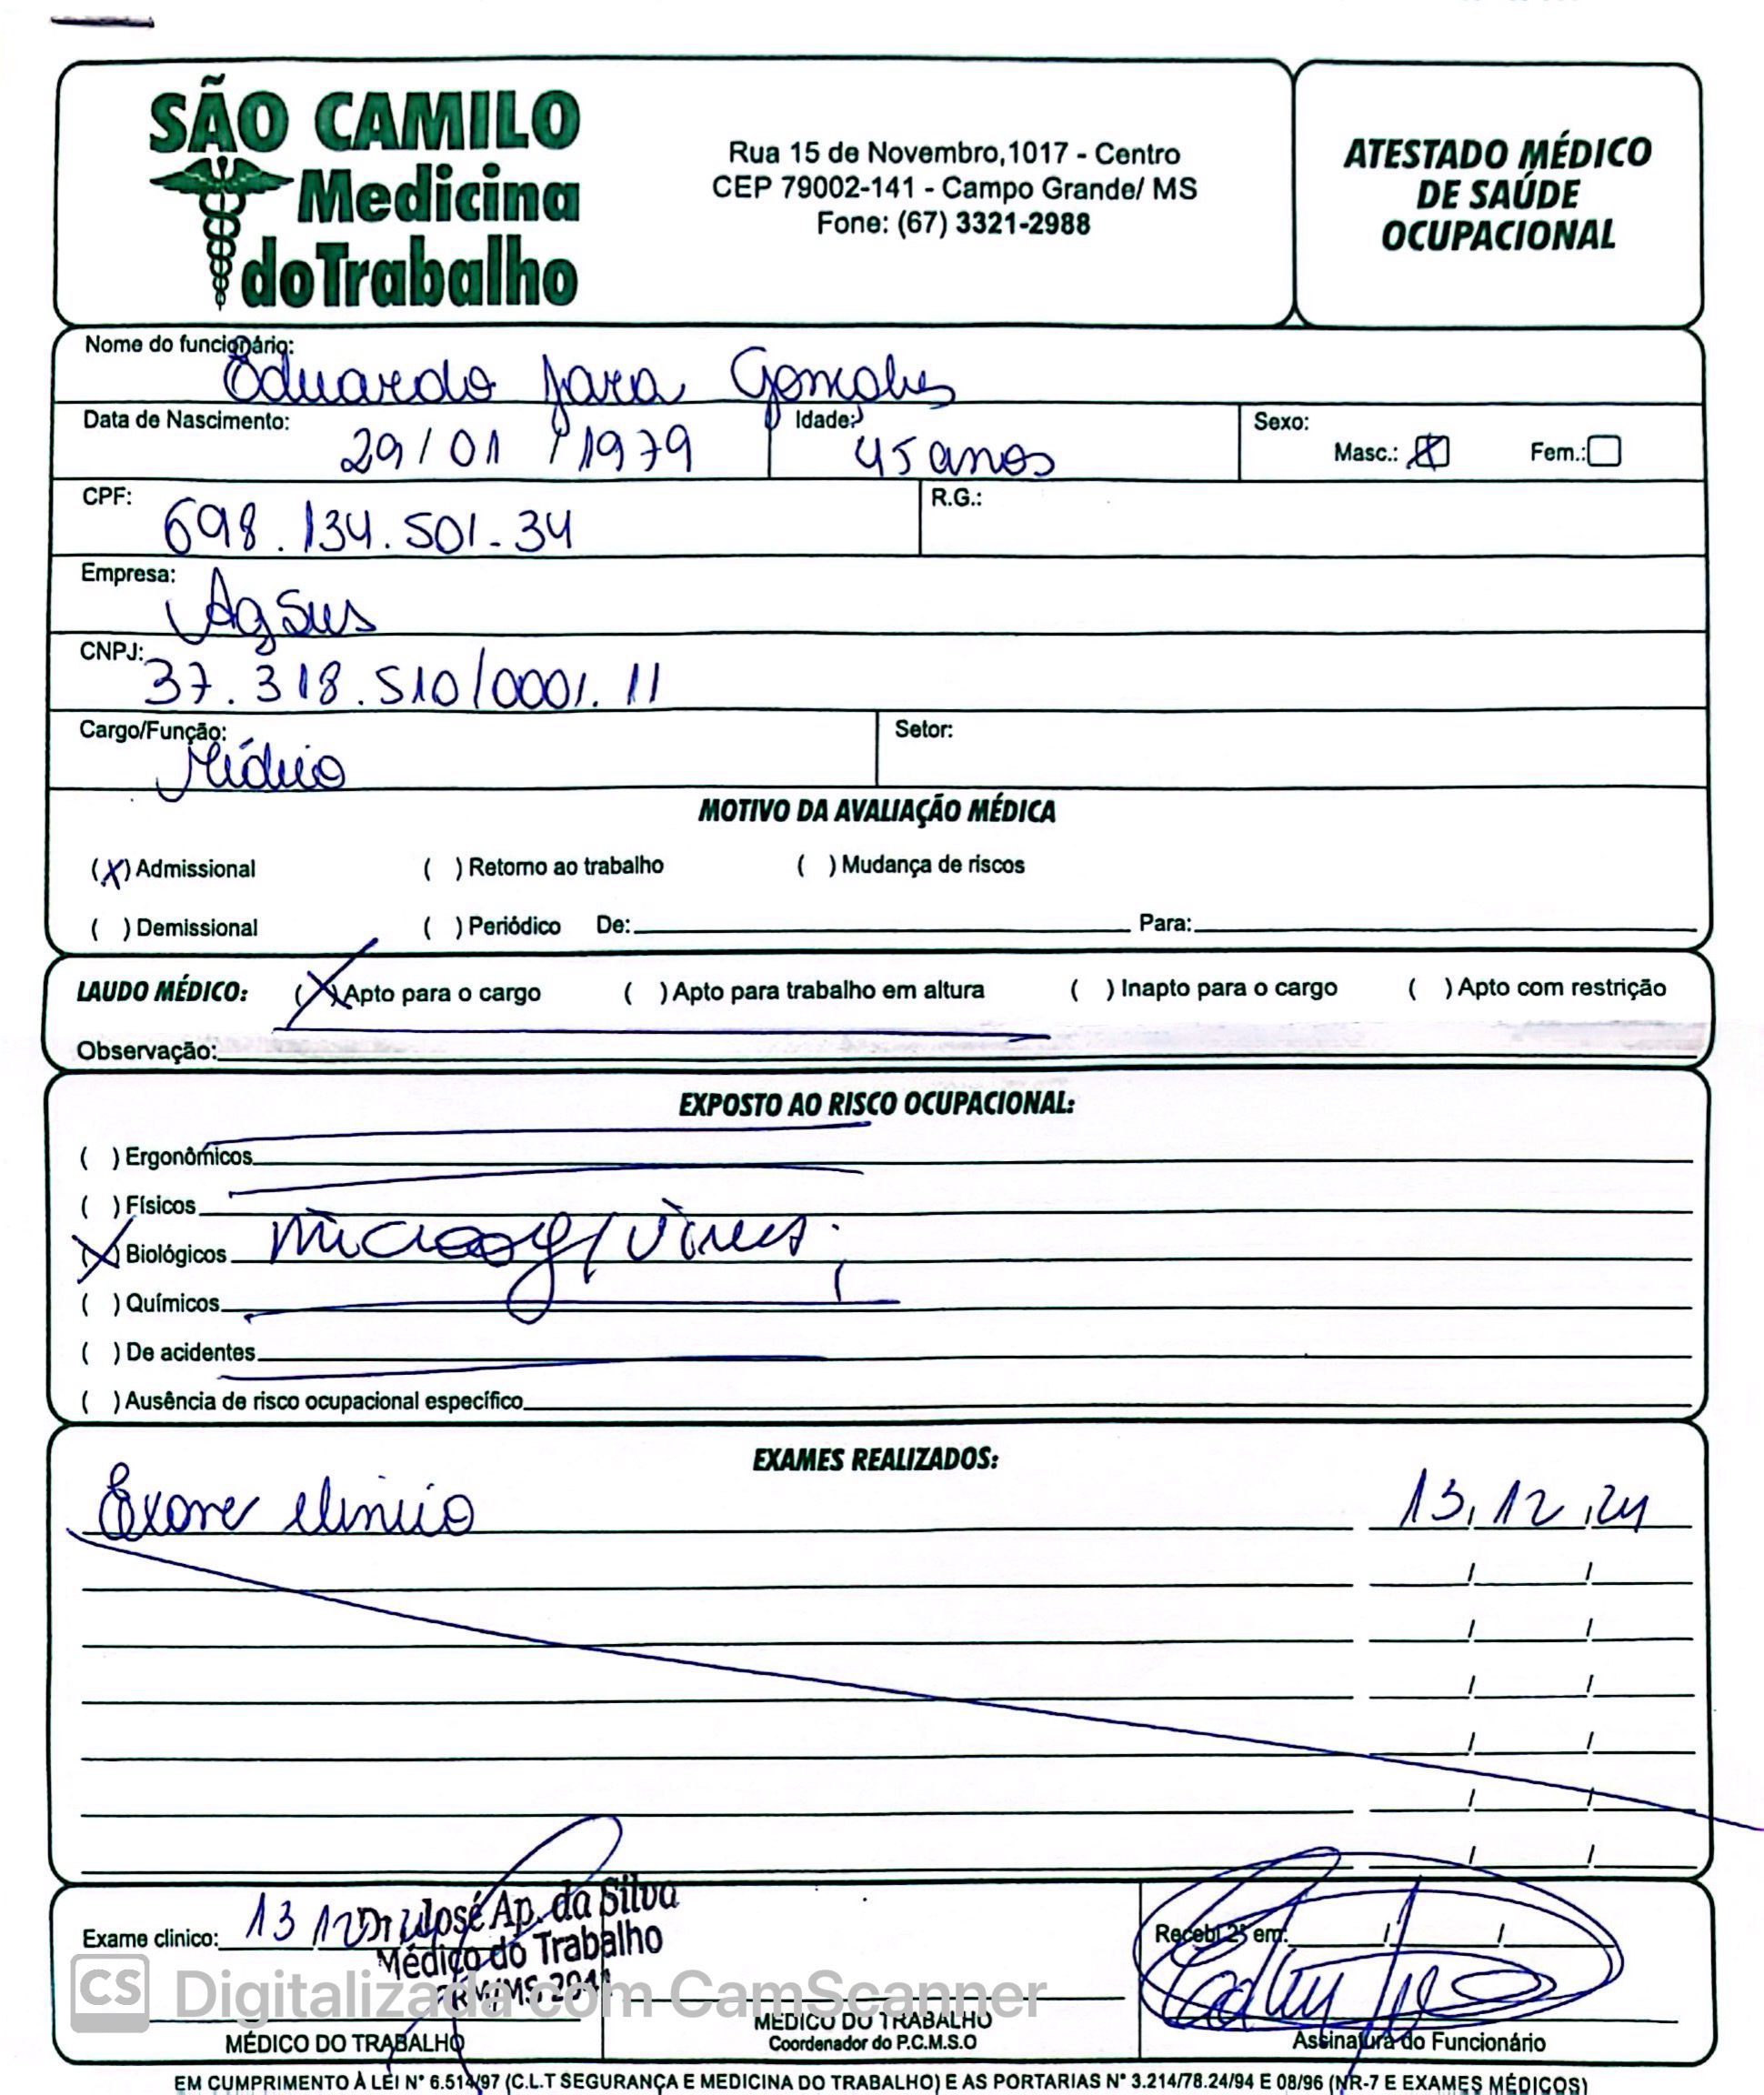 SÃO CAMILO
Medicina
do Trabalho
Rua 15 de Novembro,1017 - Centro
CEP 79002-141 - Campo Grande/ MS
Fone: (67) 3321-2988
ATESTADO MÉDICO
DE SAÚDE
OCUPACIONAL
Nome do funcionário: Eduardo Jara Gonçalves
Data de Nascimento: 29/01/1979 Idade: 45 anos Sexo: Masc.: X Fem.:
CPF: 698.134.501-34 R.G.:
Empresa: AgSus
CNPJ: 37.318.510/0001.11
Cargo/Função: Médico Setor:
MOTIVO DA AVALIAÇÃO MÉDICA
(X) Admissional ( ) Retorno ao trabalho ( ) Mudança de riscos
( ) Demissional ( ) Periódico De: Para:
LAUDO MÉDICO: (X) Apto para o cargo ( ) Apto para trabalho em altura ( ) Inapto para o cargo ( ) Apto com restrição
Observação:
EXPOSTO AO RISCO OCUPACIONAL:
( ) Ergonômicos
( ) Físicos
(X) Biológicos Microorg/Vírus.
( ) Químicos
( ) De acidentes
( ) Ausência de risco ocupacional específico
EXAMES REALIZADOS:
Exame clinico 13/12/24
Exame clinico: 13/12 Dr. José Ap. da Silva
Médico do Trabalho
CRM/MS 2941
Recebi 2ª em: / /
CS Digitalizada com CamScanner
MÉDICO DO TRABALHO
MÉDICO DO TRABALHO
Coordenador do P.C.M.S.O
Assinatura do Funcionário
EM CUMPRIMENTO À LEI N° 6.514/97 (C.L.T SEGURANÇA E MEDICINA DO TRABALHO) E AS PORTARIAS N° 3.214/78.24/94 E 08/96 (NR-7 E EXAMES MÉDICOS)